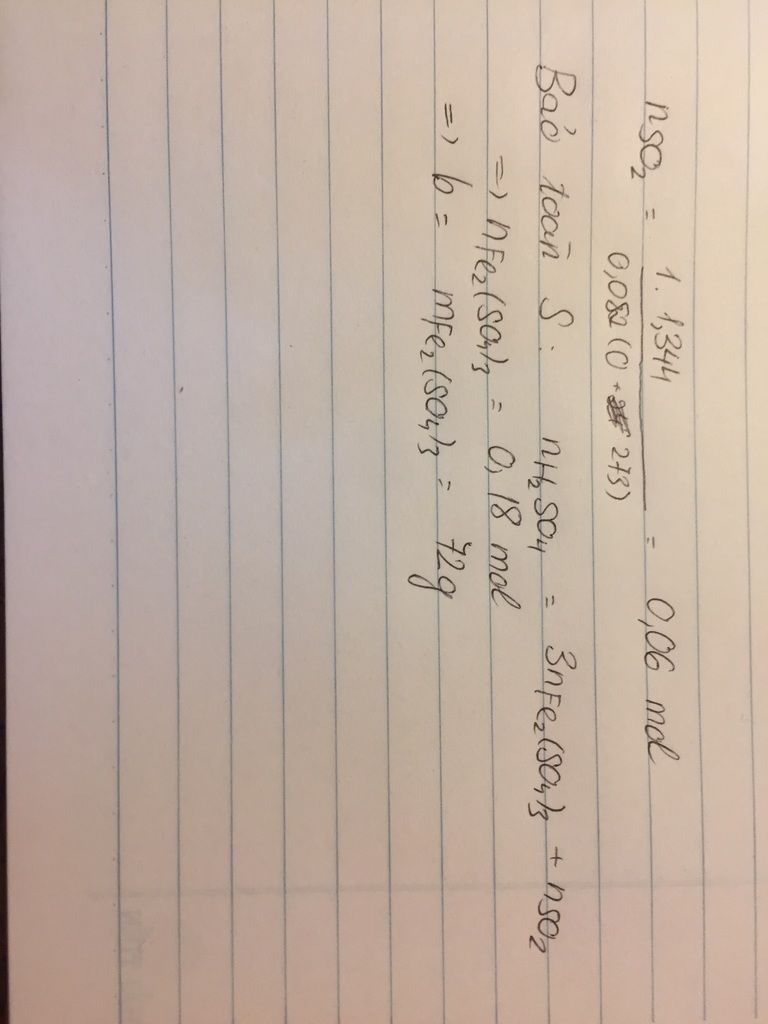 nSO₂ = 1. 1,344 / 0,082 (0 + 273) = 0,06 mol
Bảo toàn S: nH₂SO₄ = 3nFe₂(SO₄)₃ + nSO₂
=> nFe₂(SO₄)₃ = 0,18 mol
=> b = mFe₂(SO₄)₃ = 72g